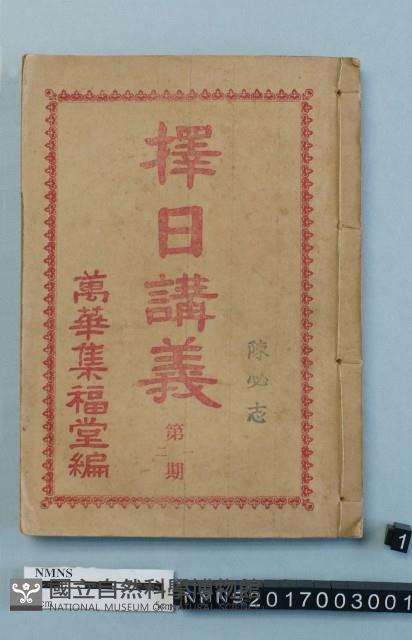 擇日講義
第一二期
陳必志
萬華集福堂編
1
NMNS
國立自然科學博物館
NATIONAL MUSEUM OF NATURAL SCIENCE
NMNS2017003001